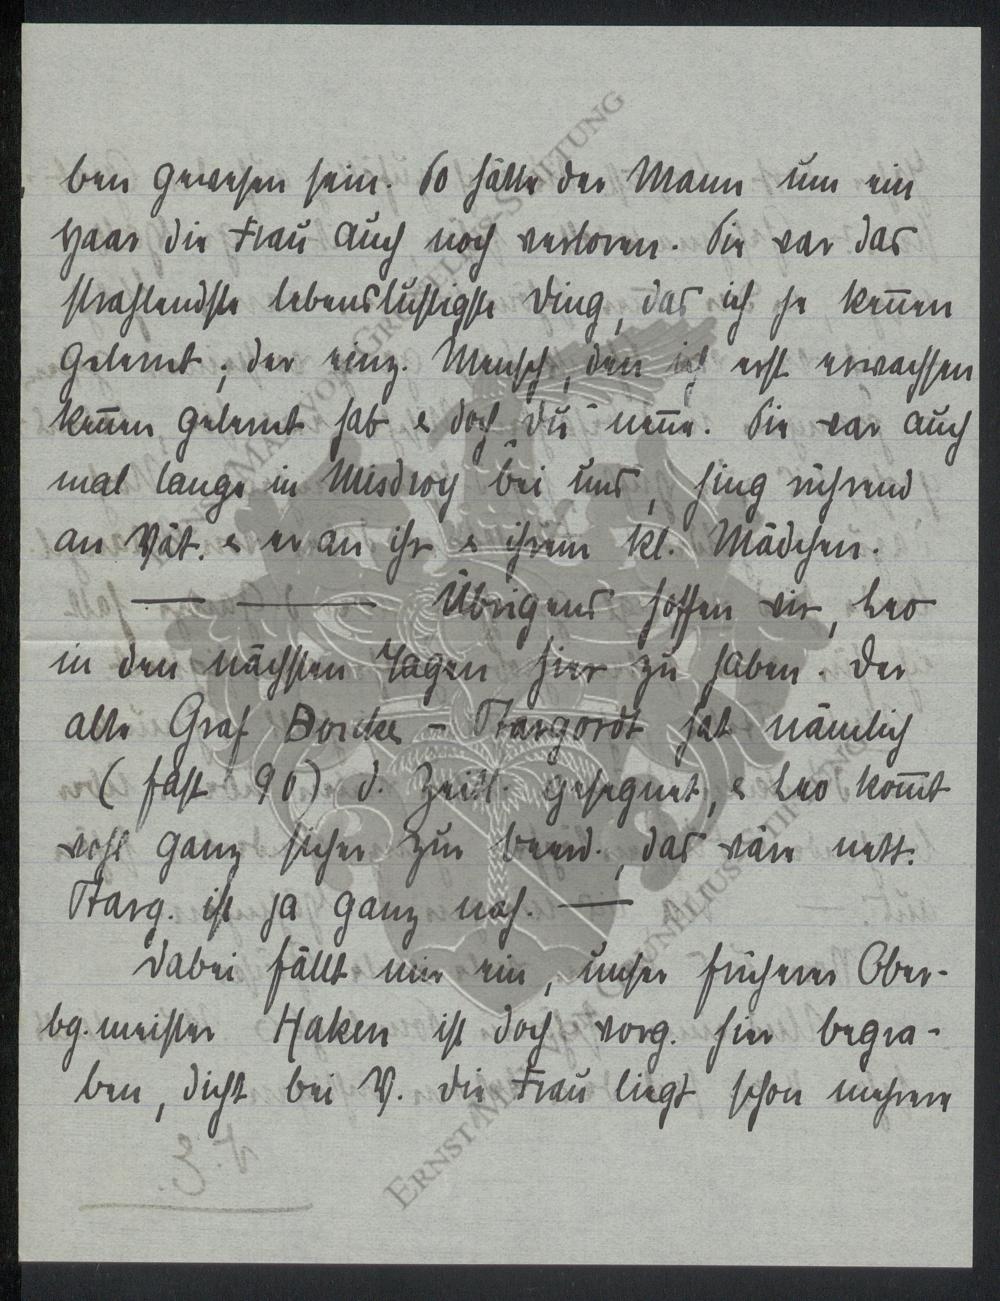 ben gewesen sein. So hätte der Mann um ein
Haar die Frau auch noch verloren. Sie war das
strahlendste lebenslustigste Ding, das ich je kennen
gelernt; der einz. Mensch, den ich erst erwachsen
kennen gelernt hab & doch "du" nenne. Sie war auch
mal lange in Misdroy bei uns, hing rührend
an Vät. & er an ihr & ihrem kl. Mädchen.
— — Übrigens hoffen wir, Leo
in den nächsten Tagen hier zu haben. Der
alte Graf Borcke - Stargordt hat nämlich
(fast 90) d. Zeitl. gesegnet, & Leo kommt
wohl ganz sicher zur Beerd., das wäre nett.
Starg. ist ja ganz nah. —
Dabei fällt mir ein, unser früherer Ober-
bg.meister Haken ist doch vorg. hier begra-
ben, dicht bei V. Die Frau liegt schon mehrere
ERNST MAX VON GRUNELIUS-STIFTUNG
ERNST MAX VON GRUNELIUS-STIFTUNG